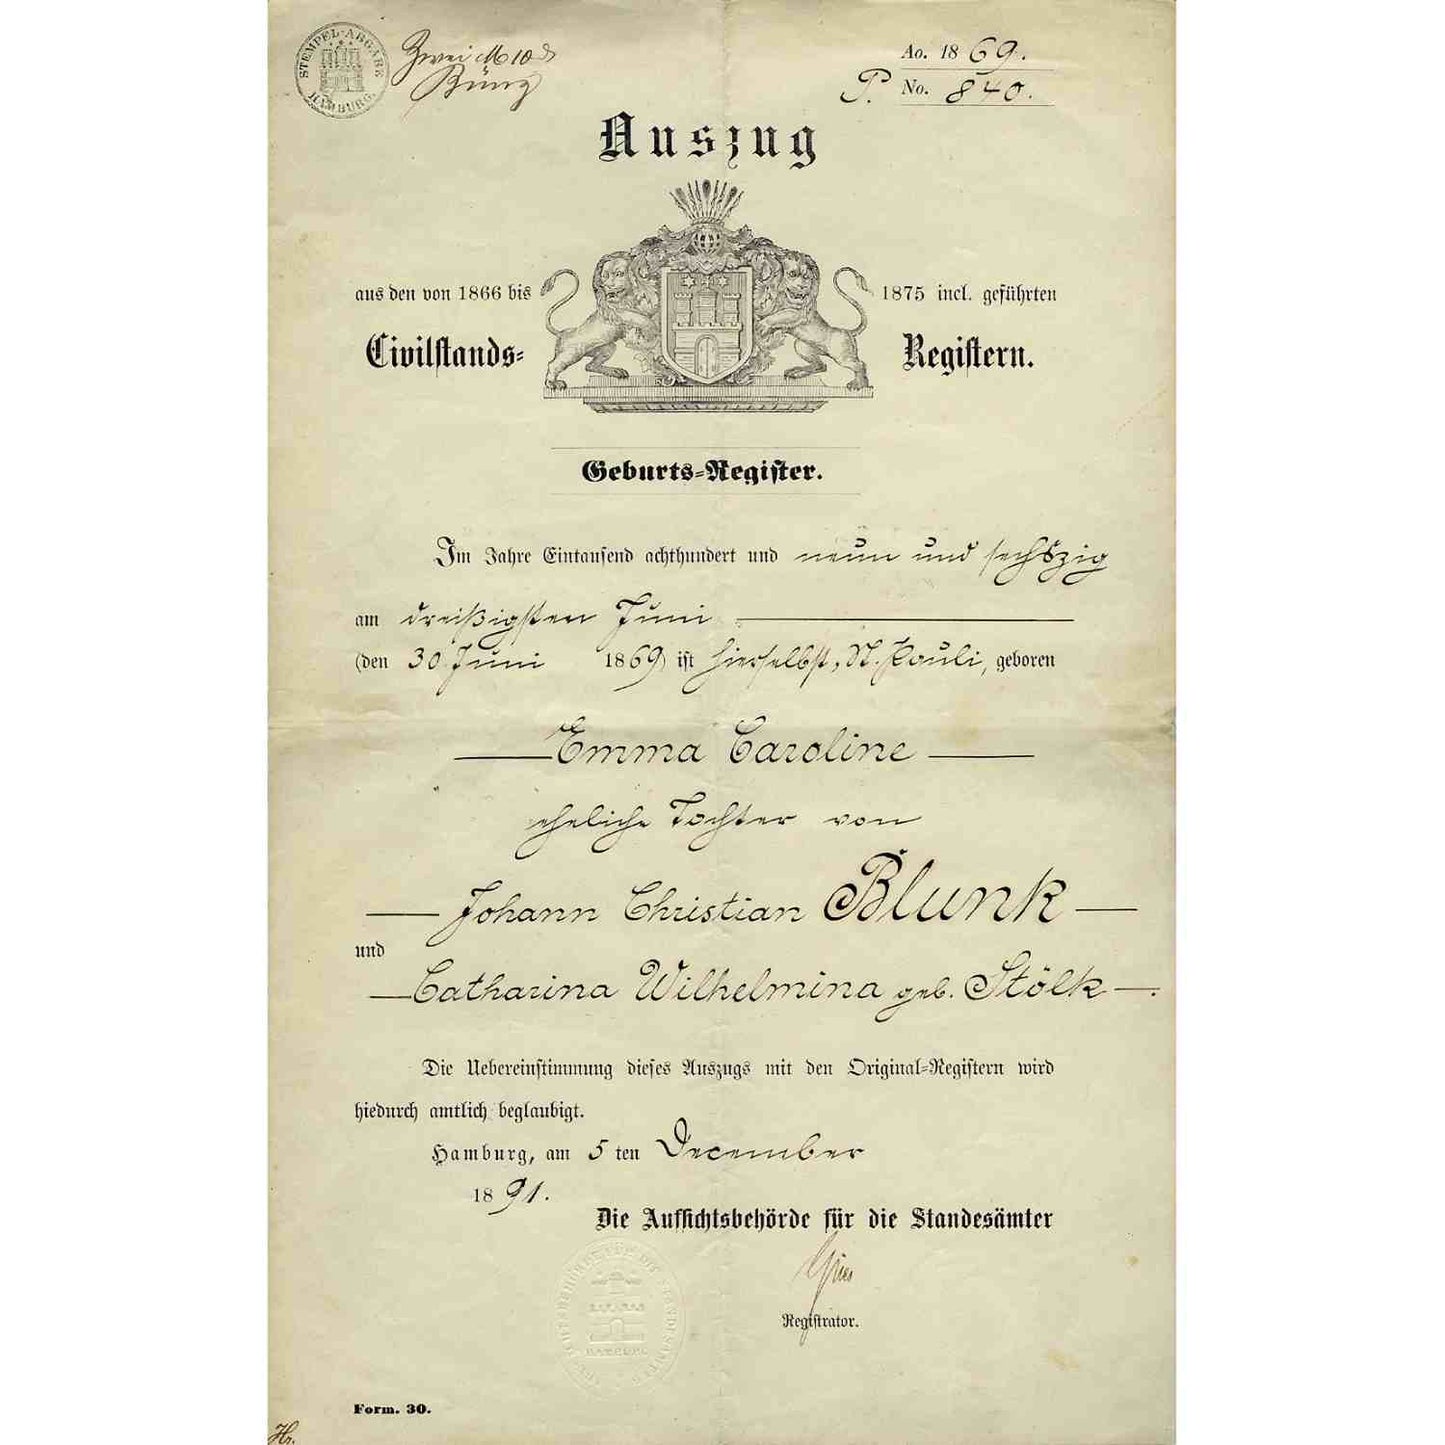 STEMPEL-ABGABE
HAMBURG.
Zwei M 10 ₰
Ao. 1869.
P. No. 840.
Auszug
aus den von 1866 bis 1875 incl. geführten
Civilstands- Registern.
Geburts-Register.
Im Jahre Eintausend achthundert und neun und sechszig
am dreißigsten Juni
(den 30 Juni 1869) ist hierselbst, St. Pauli, geboren
Emma Caroline
eheliche Tochter von
Johann Christian Blunk
und
Catharina Wilhelmina geb. Stölk.
Die Uebereinstimmung dieses Auszugs mit den Original-Registern wird
hiedurch amtlich beglaubigt.
Hamburg, am 5 ten December
1891.
Die Aufsichtsbehörde für die Standesämter
Registrator.
HAMBURG
Form. 30.
Hr.